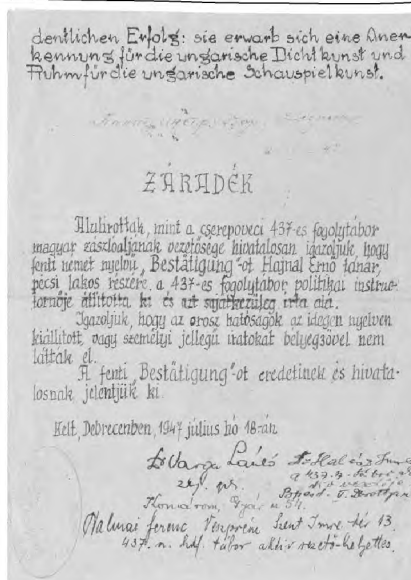 dentlichen Erfolg: sie erwarb sich eine Aner-
kennung für die ungarische Dichtkunst und
Ruhm für die ungarische Schauspielkunst.
ZÁRADÉK
Alulirottak, mint a cserepoveci 437-es fogolytábor
magyar zászlóaljának vezetősége hivatalosan igazoljuk, hogy
fenti német nyelvű „Bestätigung"-ot Hajnal Ernő tanár,
pécsi lakos részére, a 437-es fogolytábor politikai instruc-
tornője állította ki és azt sajátkezűleg írta alá.
Igazoljuk, hogy az orosz hatóságok az idegen nyelven
kiállított, vagy személyi jellegű iratokat bélyegzővel nem
látták el.
A fenti „Bestätigung"-ot eredetinek és hivata-
losnak jelentjük ki.
Kelt, Debrecenben, 1947 július hó 18-án
Dr Varga László Dr Halász Imre
a 437.
Komárom, Gyár u 54.
Halmai Ferenc Veszprém Szent Imre tér 13.
437. n. hdf. tábor aktiv vezető-helyettes.